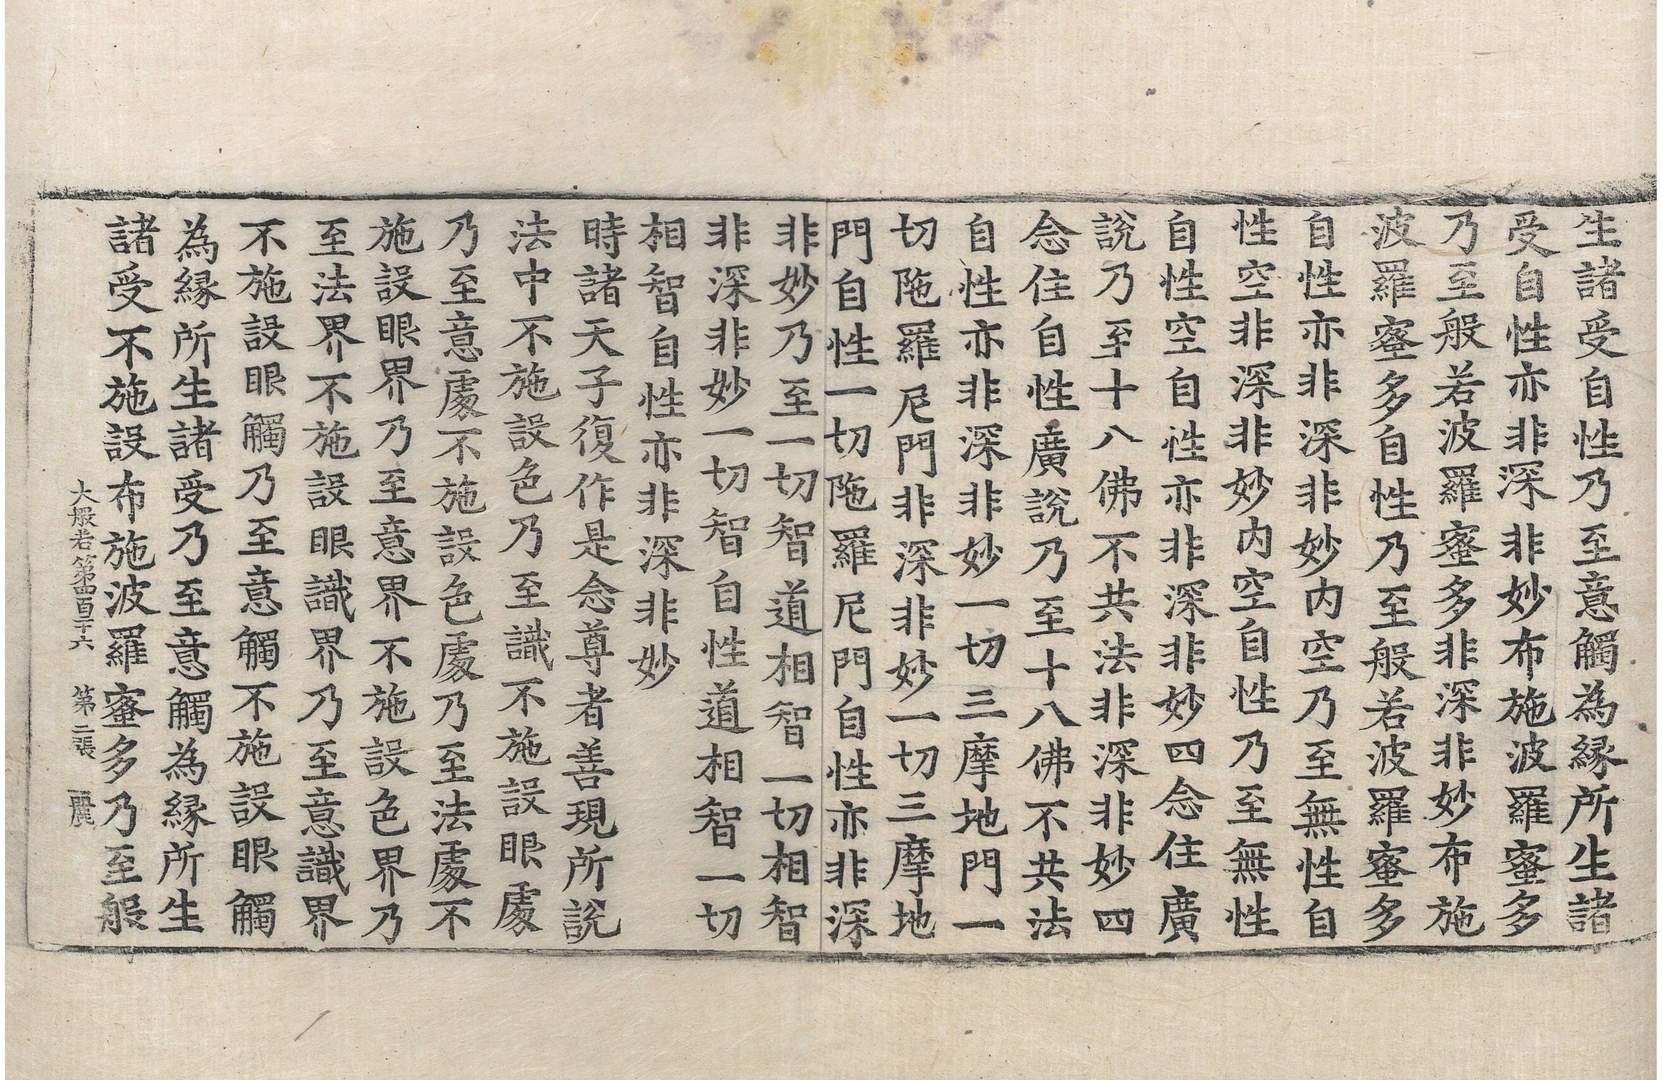 生諸受自性乃至意觸為緣所生諸
受自性亦非深非妙布施波羅蜜多
乃至般若波羅蜜多非深非妙布施
波羅蜜多自性乃至般若波羅蜜多
自性亦非深非妙內空乃至無性自
性空非深非妙內空自性乃至無性
自性空自性亦非深非妙四念住廣
說乃至十八佛不共法非深非妙四
念住自性廣說乃至十八佛不共法
自性亦非深非妙一切三摩地門一
切陁羅尼門非深非妙一切三摩地
門自性一切陁羅尼門自性亦非深
非妙乃至一切智道相智一切相智
非深非妙一切智自性道相智一切
相智自性亦非深非妙
時諸天子復作是念尊者善現所說
法中不施設色乃至識不施設眼處
乃至意處不施設色處乃至法處不
施設眼界乃至意界不施設色界乃
至法界不施設眼識界乃至意識界
不施設眼觸乃至意觸不施設眼觸
為緣所生諸受乃至意觸為緣所生
諸受不施設布施波羅蜜多乃至般
大般若第四百二十六 第二張 麗